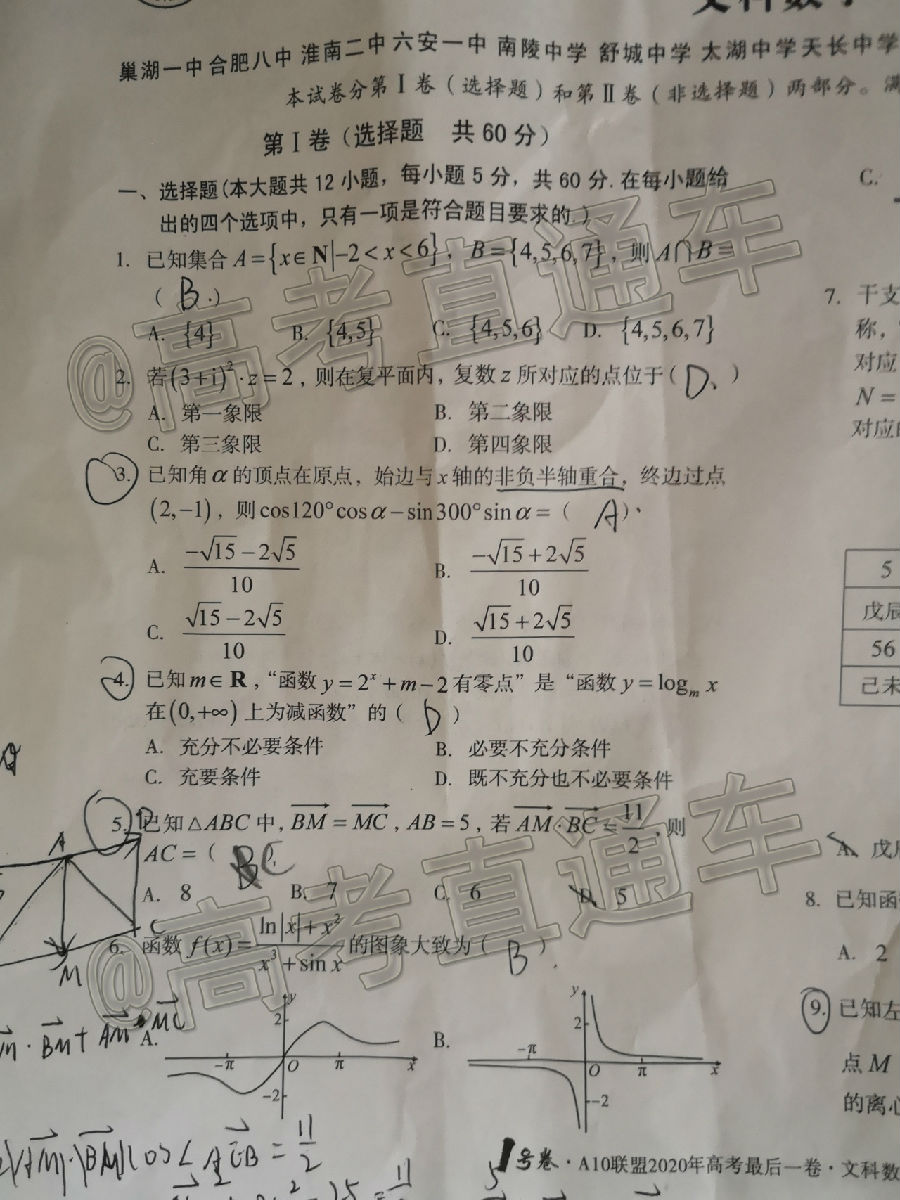 文科数学
巢湖一中 合肥八中 淮南二中 六安一中 南陵中学 舒城中学 太湖中学 天长中学
本试卷分第Ⅰ卷（选择题）和第Ⅱ卷（非选择题）两部分。满
第Ⅰ卷（选择题 共60分）
一、选择题(本大题共12小题，每小题5分，共60分.在每小题给
出的四个选项中，只有一项是符合题目要求的.）
1. 已知集合A={x∈N|-2<x<6}，B={4,5,6,7}，则A∩B=
（ B ）
A. {4} B. {4,5} C. {4,5,6} D. {4,5,6,7}
2. 若(3+i)²·z=2，则在复平面内，复数z所对应的点位于（ D、）
A. 第一象限 B. 第二象限
C. 第三象限 D. 第四象限
3. 已知角α的顶点在原点，始边与x轴的非负半轴重合，终边过点
(2,-1)，则cos120°cosα-sin300°sinα=（ A ）
A. (-√15-2√5)/10 B. (-√15+2√5)/10
C. (√15-2√5)/10 D. (√15+2√5)/10
4. 已知m∈R，“函数y=2ˣ+m-2有零点”是“函数y=logₘ x
在(0,+∞)上为减函数”的（ D ）
A. 充分不必要条件 B. 必要不充分条件
C. 充要条件 D. 既不充分也不必要条件
5. 已知△ABC中，BM=MC，AB=5，若AM·BC=11/2，则
AC=（ C
A. 8 B. 7 C. 6 D. 5
6. 函数f(x)=(ln|x|+x²)/(x³+sin x)的图象大致为（ B ）
A. y 2 -π O π x -2
B. y 2 -π O π x -2
A
C
M
·BM+AM·MC
|AM|·|BM|cos∠
=11/2
1号卷·A10联盟2020年高考最后一卷·文科数
C.
7. 干支
称，
对应
N=
对应的
5
戊辰
56
己未
A. 戊辰
8. 已知函
A. 2
9. 已知左
点M
的离心
@高考直通车
@高考直通车